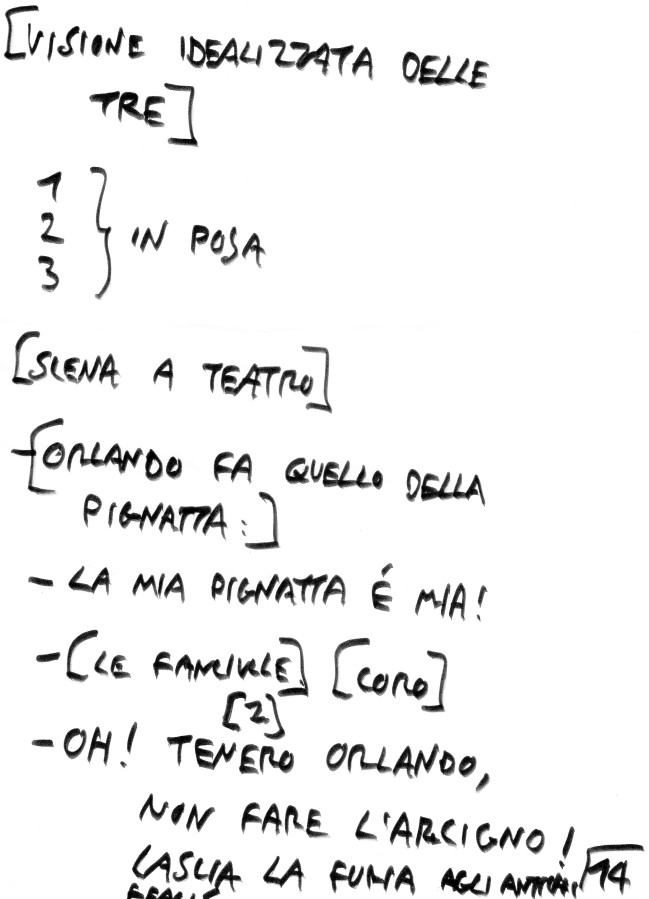 [VISIONE IDEALIZZATA DELLE
TRE]
1
2
3
} IN POSA
[SCENA A TEATRO]
-[ORLANDO FA QUELLO DELLA
PIGNATTA:]
- LA MIA PIGNATTA É MIA!
-[LE FANCIULLE] [CORO]
[2]
- OH! TENERO ORLANDO,
NON FARE L'ARCIGNO!
LASCIA LA FURIA AGLI
14